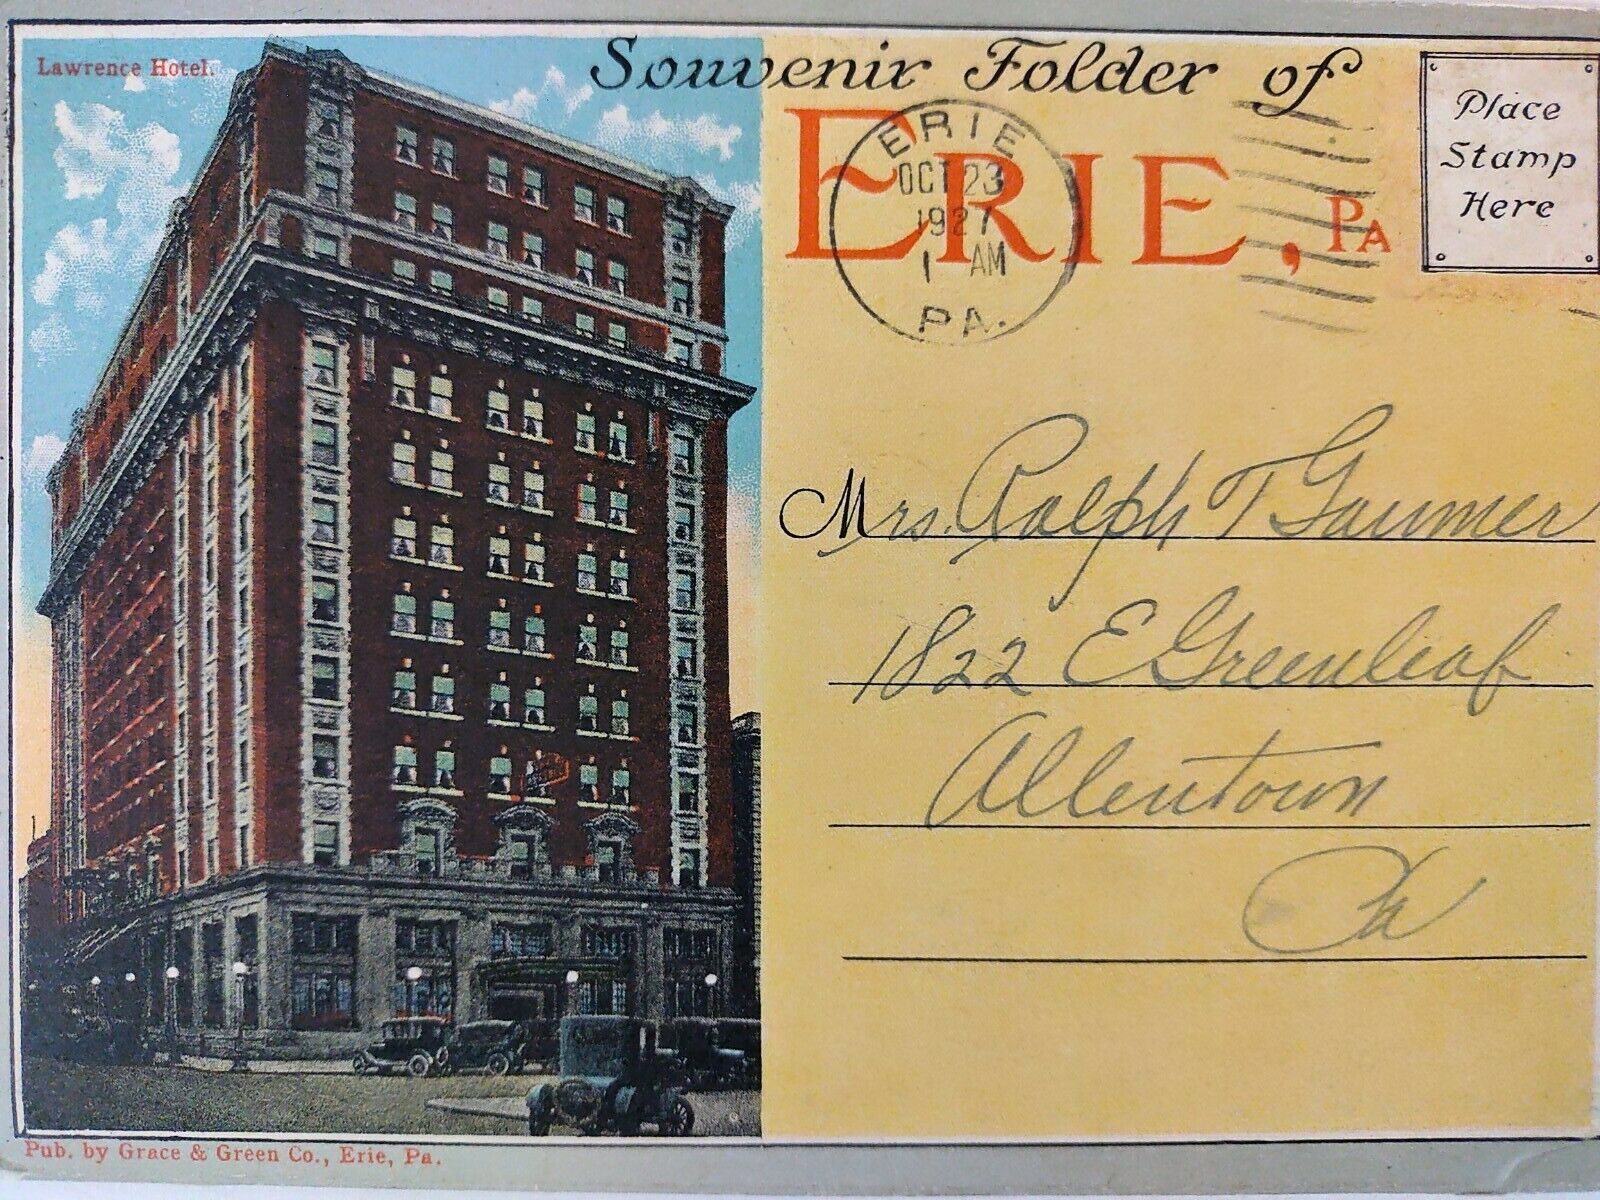 Lawrence Hotel.
Souvenir Folder of
ERIE, PA
Place
Stamp
Here
ERIE
OCT 23
1927
1 AM
PA.
Mrs. Ralph T Gaumer
1822 E Greenleaf
Allentown
Pa
Pub. by Grace & Green Co., Erie, Pa.